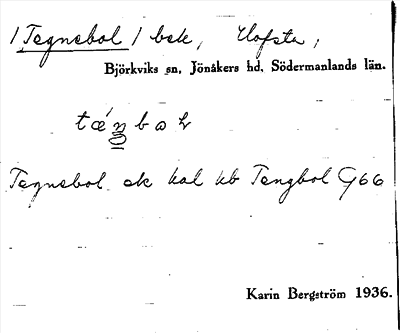 /Tegnebol/ bsk, Hofsta,
Björkviks sn, Jönåkers hd, Södermanlands län.
Tegnebol ek kal kb Tengbol G66
Karin Bergström 1936.